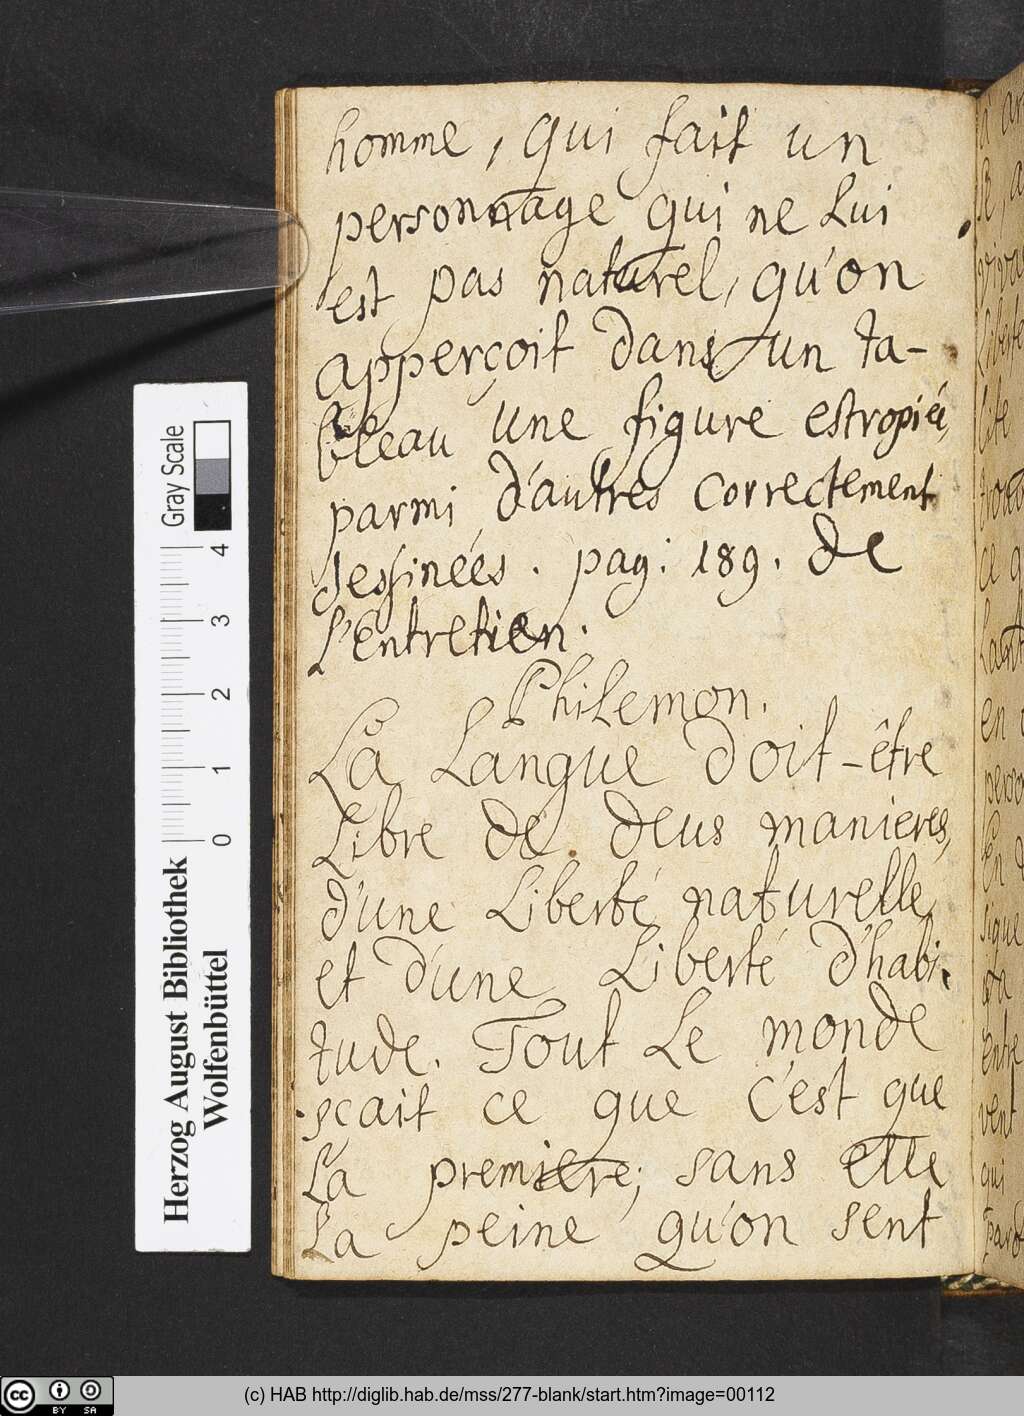 homme, qui fait un
personnage qui ne Lui
est pas naturel, qu'on
apperçoit dans un ta-
bleau une figure estropiée,
parmi d'autres correctement
dessinées. pag: 189. de
L'Entretien.
Philemon.
La Langue doit-être
Libre de deus manieres,
d'une Liberté naturelle,
et d'une Liberté d'habi-
tude. Tout Le monde
scait ce que c'est que
La premiere; sans elle
La peine qu'on sent
Gray Scale
0 1 2 3 4
Herzog August Bibliothek
Wolfenbüttel
cc BY SA
(c) HAB http://diglib.hab.de/mss/277-blank/start.htm?image=00112